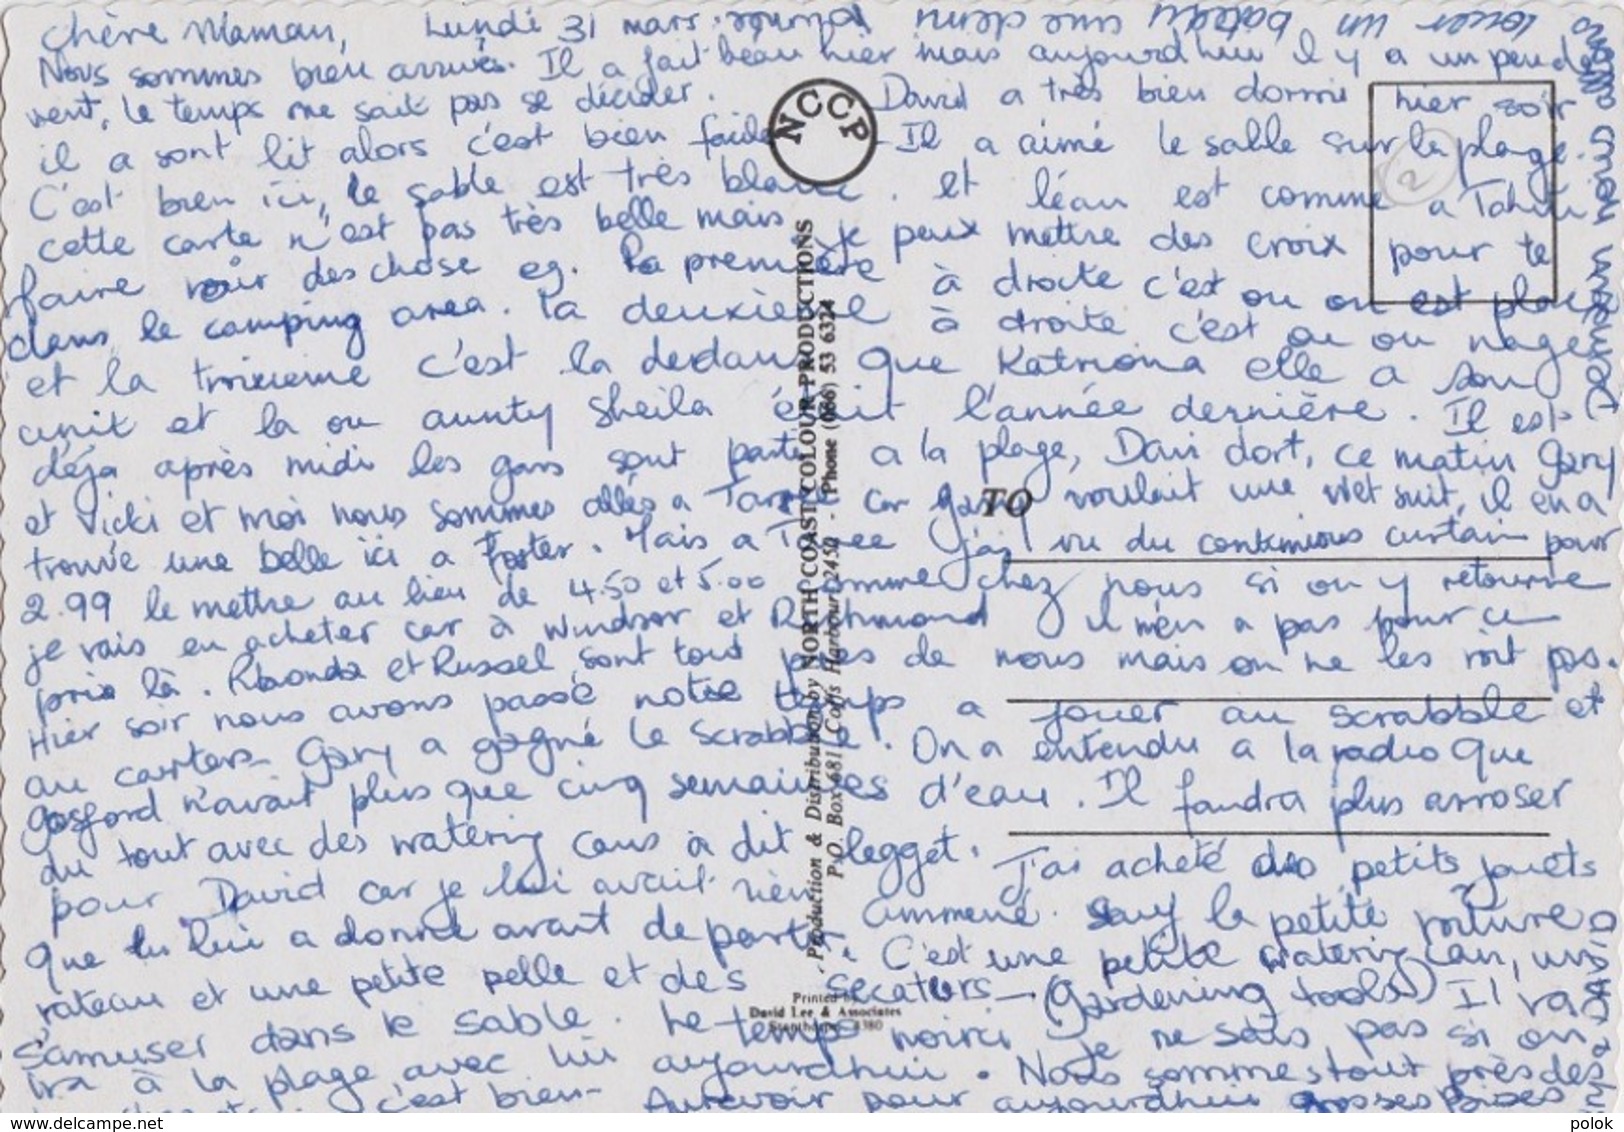 Chère Maman, Lundi 31 mars.
Nous sommes bien arrivés. Il a fait beau hier mais aujourd'hui il y a un peu de
vent, le temps ne sait pas se décider. David a très bien dormi hier soir
il a sont lit alors c'est bien faile - Il a aimé le sable sur la plage.
C'est bien ici, le sable est très blanc. et léau est comme a Tahiti
cette carte n'est pas très belle mais je peux mettre des croix pour te
faire voir des chose eg. la première à droite c'est ou on est place
dans le camping area. la deuxième à droite c'est ou on nage
et la troixieme c'est la dedans que Katriona elle a son
unit et la ou aunty Sheila était l'année dernière. Il est
déja après midi les gars sont partis a la plage, Davi dort, ce matin Gary
et Vicki et moi nous sommes allés a Taree car Gary voulait une wet suit, il en a
trouvé une belle ici a Foster. Mais a Taree j'ai vu du continious curtain pour
2.99 le mettre au lieu de 4.50 et 5.00 comme chez nous si on y retourne
je vais en acheter car à Windsor et Richmond il m'en a pas pour ce
prix là. Rhonda et Russel sont tout près de nous mais on ne les voit pas.
Hier soir nous avons passé notre temps a jouer au scrabble et
au carters - Gary a gagné le Scrabble. On a entendu a la radio que
Gosford n'avait plus que cinq semaines d'eau. Il faudra plus arroser
du tout avec des watering cans à dit legget. J'ai acheté des petits jouets
pour David car je lui avait rien ammené. Sauf la petite voiture
que tu lui a donné avant de partir. C'est une petite watering can, un
rateau et une petite pelle et des secateurs - (gardening tools) Il va
s'amuser dans le sable. Le temps noirci je ne sais pas si on
ira à la plage avec lui aujourdhui. Nous sommes tout près des
c'est bien - Aurevoir pour aujourdhui grosses Bises
louer un bateau une demi
NCCP
TO
Production & Distribution by NORTH COAST COLOUR PRODUCTIONS
P.O. Box 681, Coffs Harbour 2450 - (Phone (066) 53 6324
Printed by
David Lee & Associates
Stanthorpe 4380
2
www.delcampe.net
polok